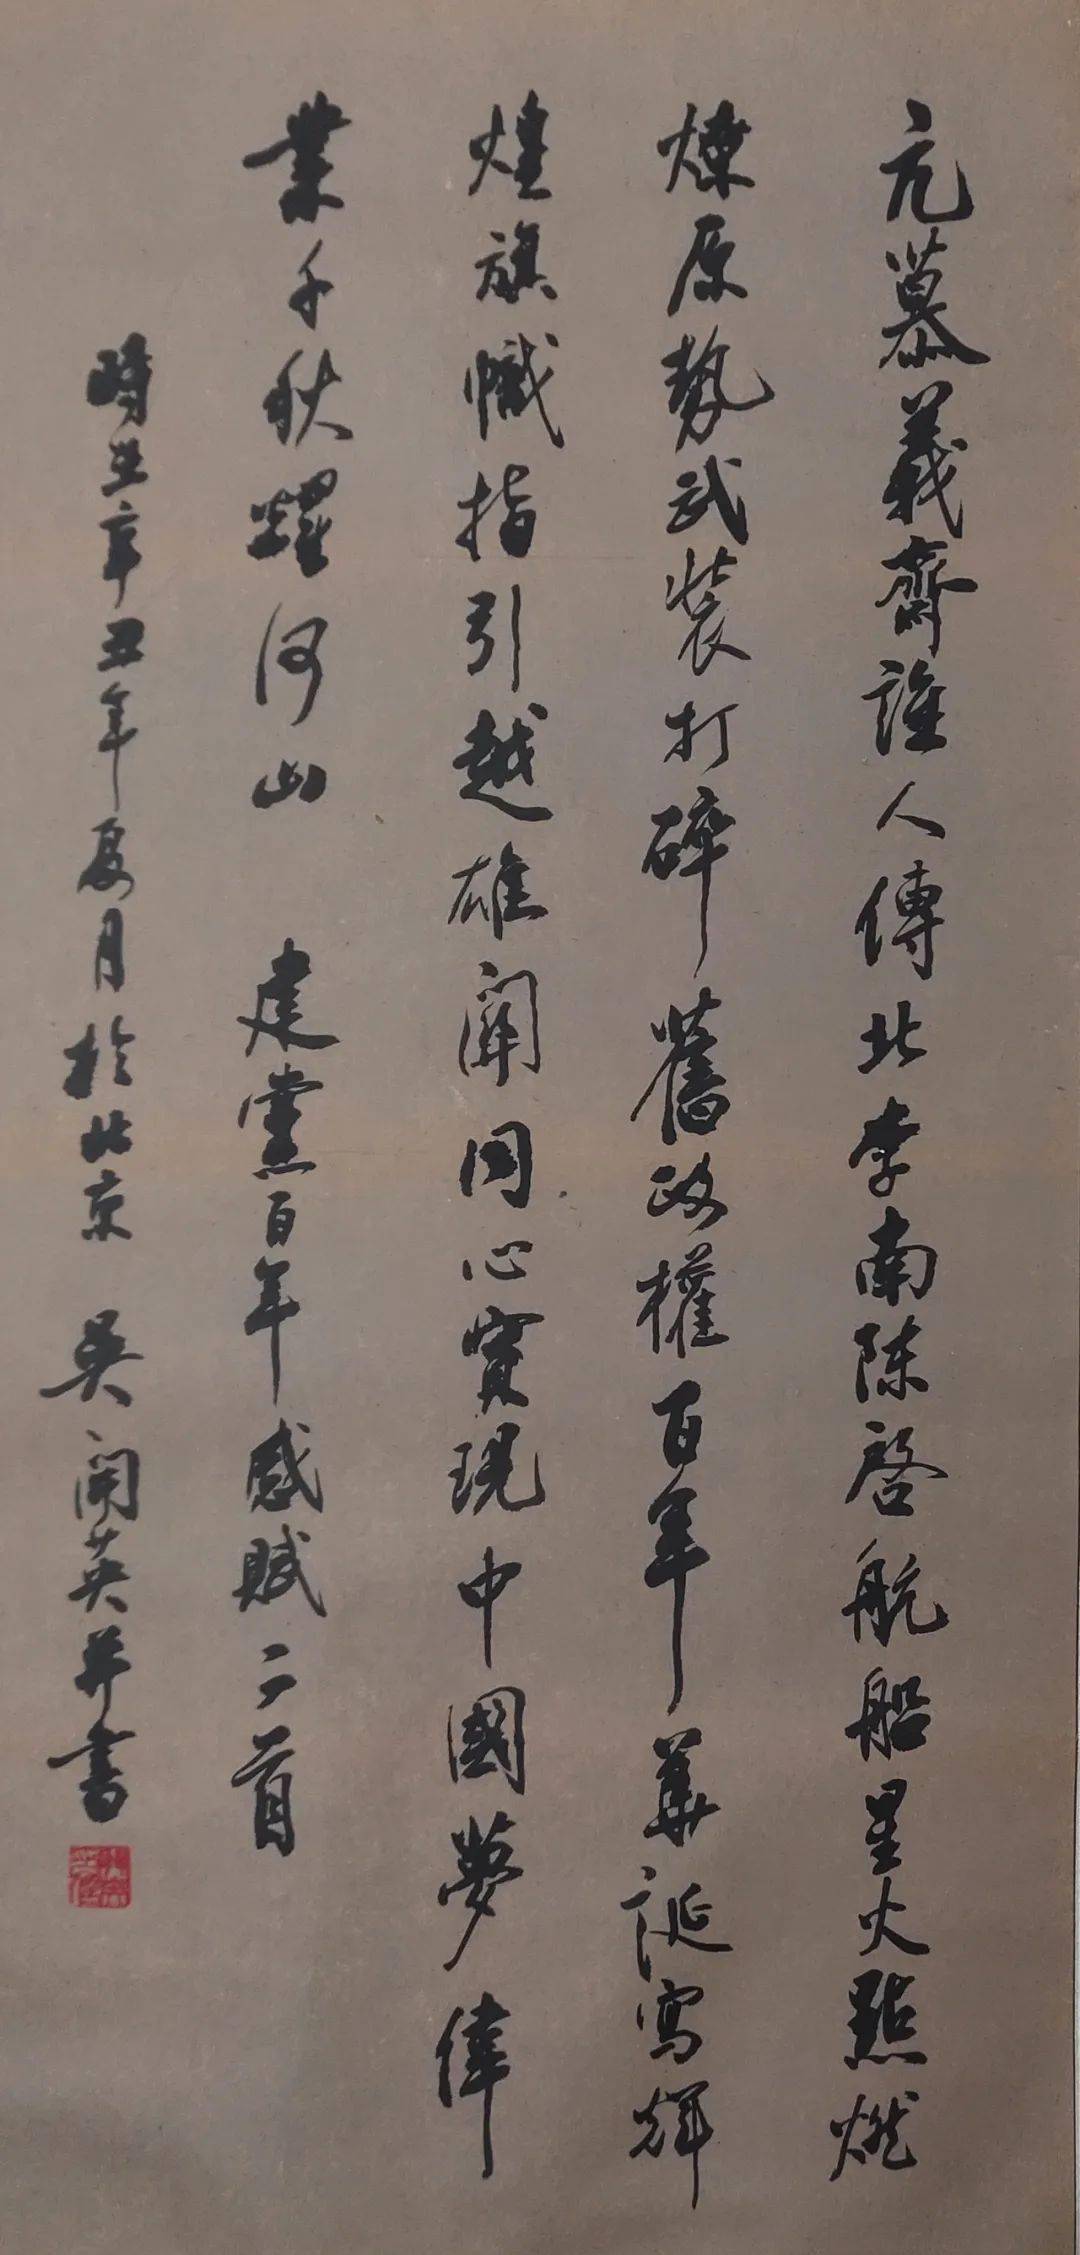 亢慕義齋誰人傳北李南陳啓航船星火點燃
燎原勢武裝打碎舊政權百年華誕寫輝
煌旗幟指引越雄關同心實現中國夢偉
業千秋耀河山 建黨百年感賦二首
時辛丑年夏月於北京 吳開英并書